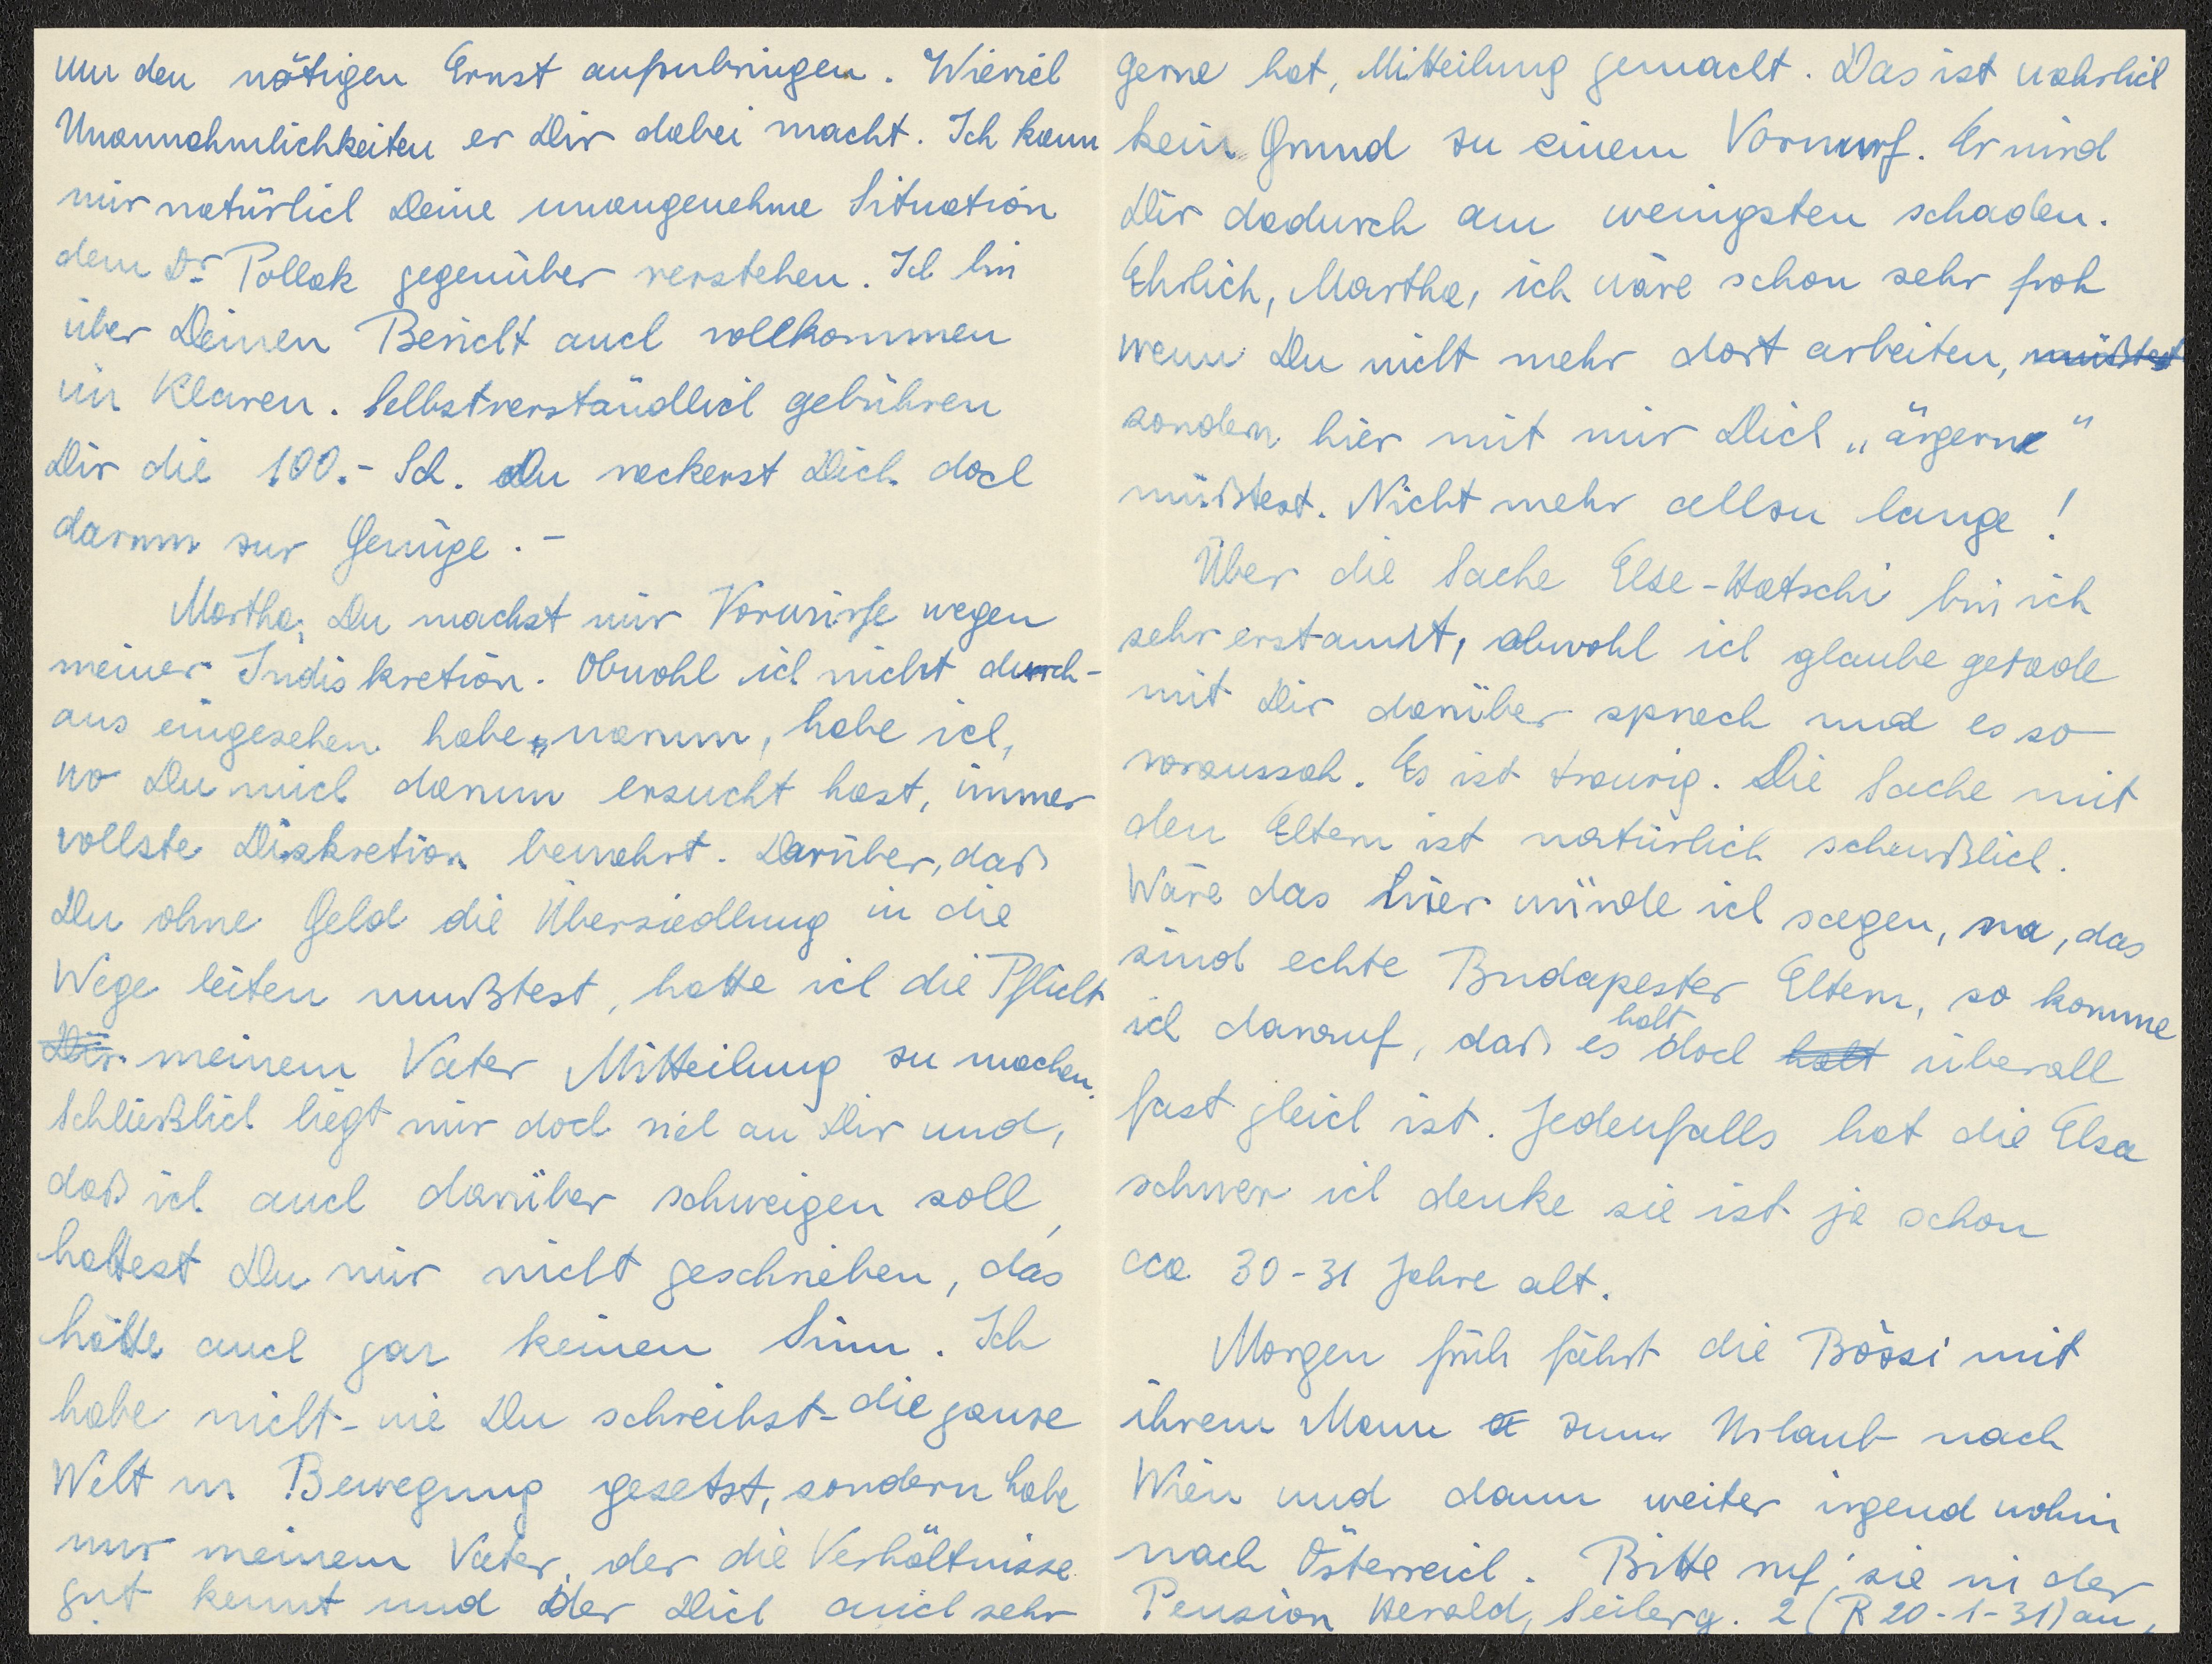 um den nötigen Ernst aufzubringen. Wieviel
Unannehmlichkeiten er Dir dabei macht. Ich kann
mir natürlich Deine unangenehme Situation
dem Dr. Pollak gegenüber verstehen. Ich bin
über Deinen Bericht auch vollkommen
im Klaren. Selbstverständlich gebühren
Dir die 100.- Sch. Du rackerst Dich doch
darum zur Genüge. -
Martha, Du machst mir Vorwürfe wegen
meiner Indiskretion. Obwohl ich nicht durch-
aus eingesehen habe, warum, habe ich,
wo Du mich darum ersucht hast, immer
vollste Diskretion bewahrt. Darüber, daß
Du ohne Geld die Übersiedlung in die
Wege leiten mußtest, hatte ich die Pflicht
Dir meinem Vater Mitteilung zu machen.
Schließlich liegt mir doch viel an Dir und,
daß ich auch darüber schweigen soll,
hattest Du mir nicht geschrieben, das
hätte auch gar keinen Sinn. Ich
habe nicht - wie Du schreibst - die ganze
Welt in Bewegung gesetzt, sondern habe
nur meinem Vater, der die Verhältnisse
gut kennt und der Dich auch sehr
gerne hat, Mitteilung gemacht. Das ist wahrlich
kein Grund zu einem Vorwurf. Er wird
Dir dadurch am wenigsten schaden.
Ehrlich, Martha, ich wäre schon sehr froh
wenn Du nicht mehr dort arbeiten, müßtest
sondern hier mit mir Dich „ärgern"
müßtest. Nicht mehr allzu lange!
Über die Sache Else-Hatschi bin ich
sehr erstaunt, obwohl ich glaube gerade
mit Dir darüber sprach und es so
voraussah. Es ist traurig. Die Sache mit
den Eltern ist natürlich scheußlich.
Wäre das hier würde ich sagen, na, das
sind echte Budapester Eltern, so komme
ich darauf, daß es halt doch halt überall
fast gleich ist. Jedenfalls hat die Elsa
schwer ich denke sie ist ja schon
cca 30-31 Jahre alt.
Morgen früh fährt die Bössi mit
ihrem Mann zum Urlaub nach
Wien und dann weiter irgend wohin
nach Österreich. Bitte ruf' sie in der
Pension Herold, Seilerg. 2 (R 20-1-31) an,